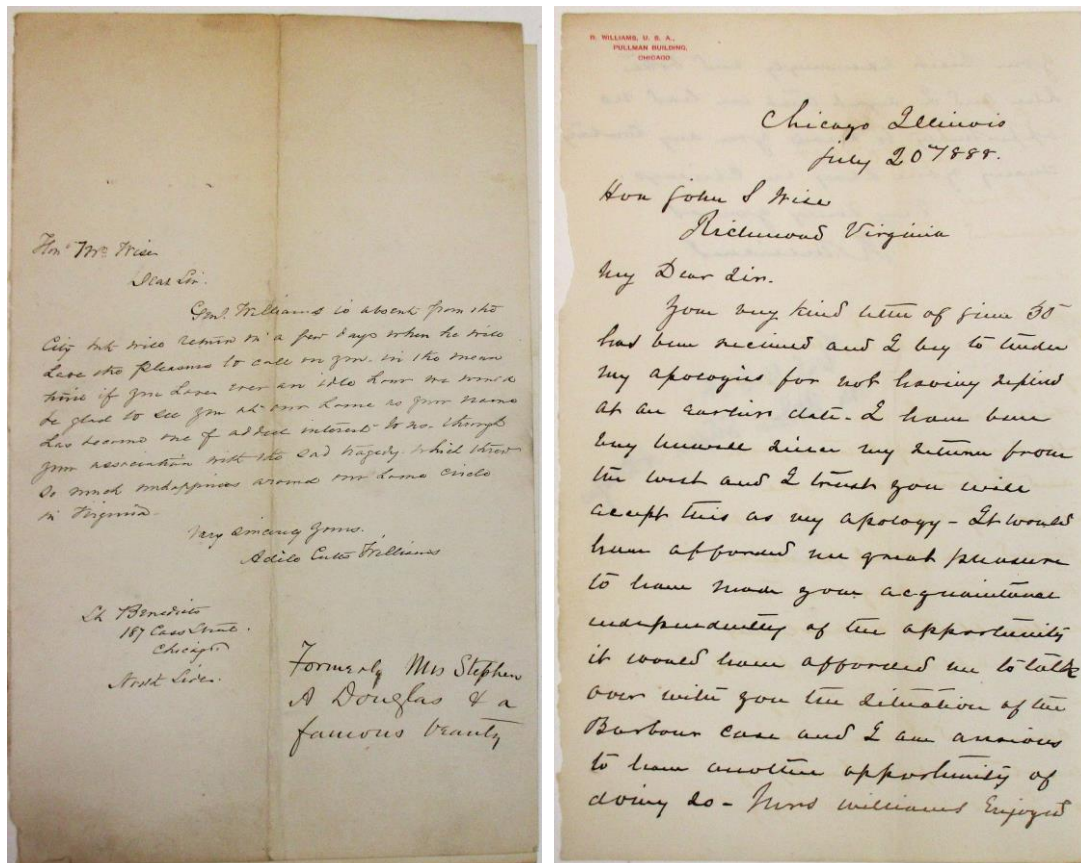 Hon. Mr. Wise
Dear Sir.
Genl. Williams is absent from the
City but will return in a few days when he will
have the pleasure to call on you. in the mean
time if you have ever an idle hour we would
be glad to see you at our home as your name
has become one of added interest to us. through
your association with the sad tragedy. which threw
so much unhappiness around our home circle
in Virginia.
Very sincerely yours.
Adele Cutts Williams
St. Benedicts
187 Cass Street.
Chicago
North Side.
Formerly Mrs Stephen
A Douglas & a
famous beauty
R. WILLIAMS, U. S. A.,
PULLMAN BUILDING,
CHICAGO
Chicago Illinois
July 20th 1888.
Hon John S Wise
Richmond Virginia
My Dear Sir.
Your very kind letter of June 30
has been received and I beg to tender
my apologies for not having replied
at an earlier date. I have been
very unwell since my return from
the west and I trust you will
accept this as my apology - It would
have afforded me great pleasure
to have made your acquaintance
independently of the opportunity
it would have afforded me to talk
over with you the situation of the
Barbour case and I am anxious
to have another opportunity of
doing so - Mrs Williams Enjoyed